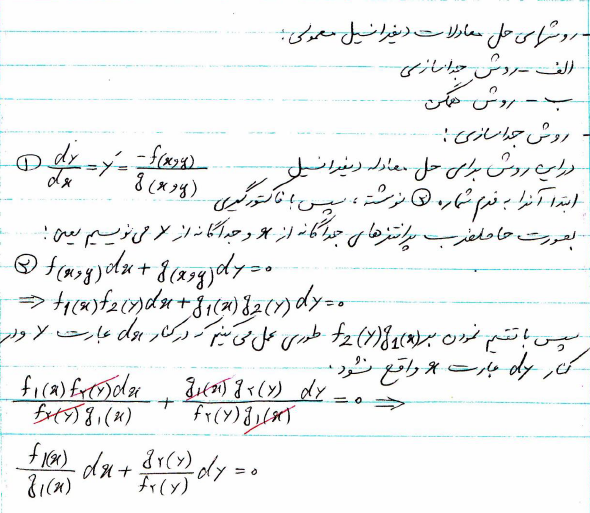 - روشهای حل معادلات دیفرانسیل معمولی:
الف - روش جداسازی
ب - روش همگن
- روش جداسازی:
در این روش برای حل معادله دیفرانسیل ① dy/dx = y′ = -f(x,y)/g(x,y)
ابتدا آنرا به فرم شماره ② نوشته، سپس با فاکتورگیری
بصورت حاصلضرب پرانتزهای جداگانه از x و جداگانه از y می نویسیم یعنی:
② f(x,y)dx + g(x,y)dy = ۰
⇒ f1(x)f2(y)dx + g1(x)g2(y)dy = ۰
سپس با تقسیم نمودن بر f2(y)g1(x) طوری عمل می کنیم که در کنار dx عبارت y و در
کنار dy عبارت x واقع نشود.
f1(x)f۲(y)dx/f۲(y)g1(x) + g1(x)g۲(y) dy/f۲(y)g1(x) = ۰ ⇒
f1(x)/g1(x) dx + g۲(y)/f۲(y) dy = ۰